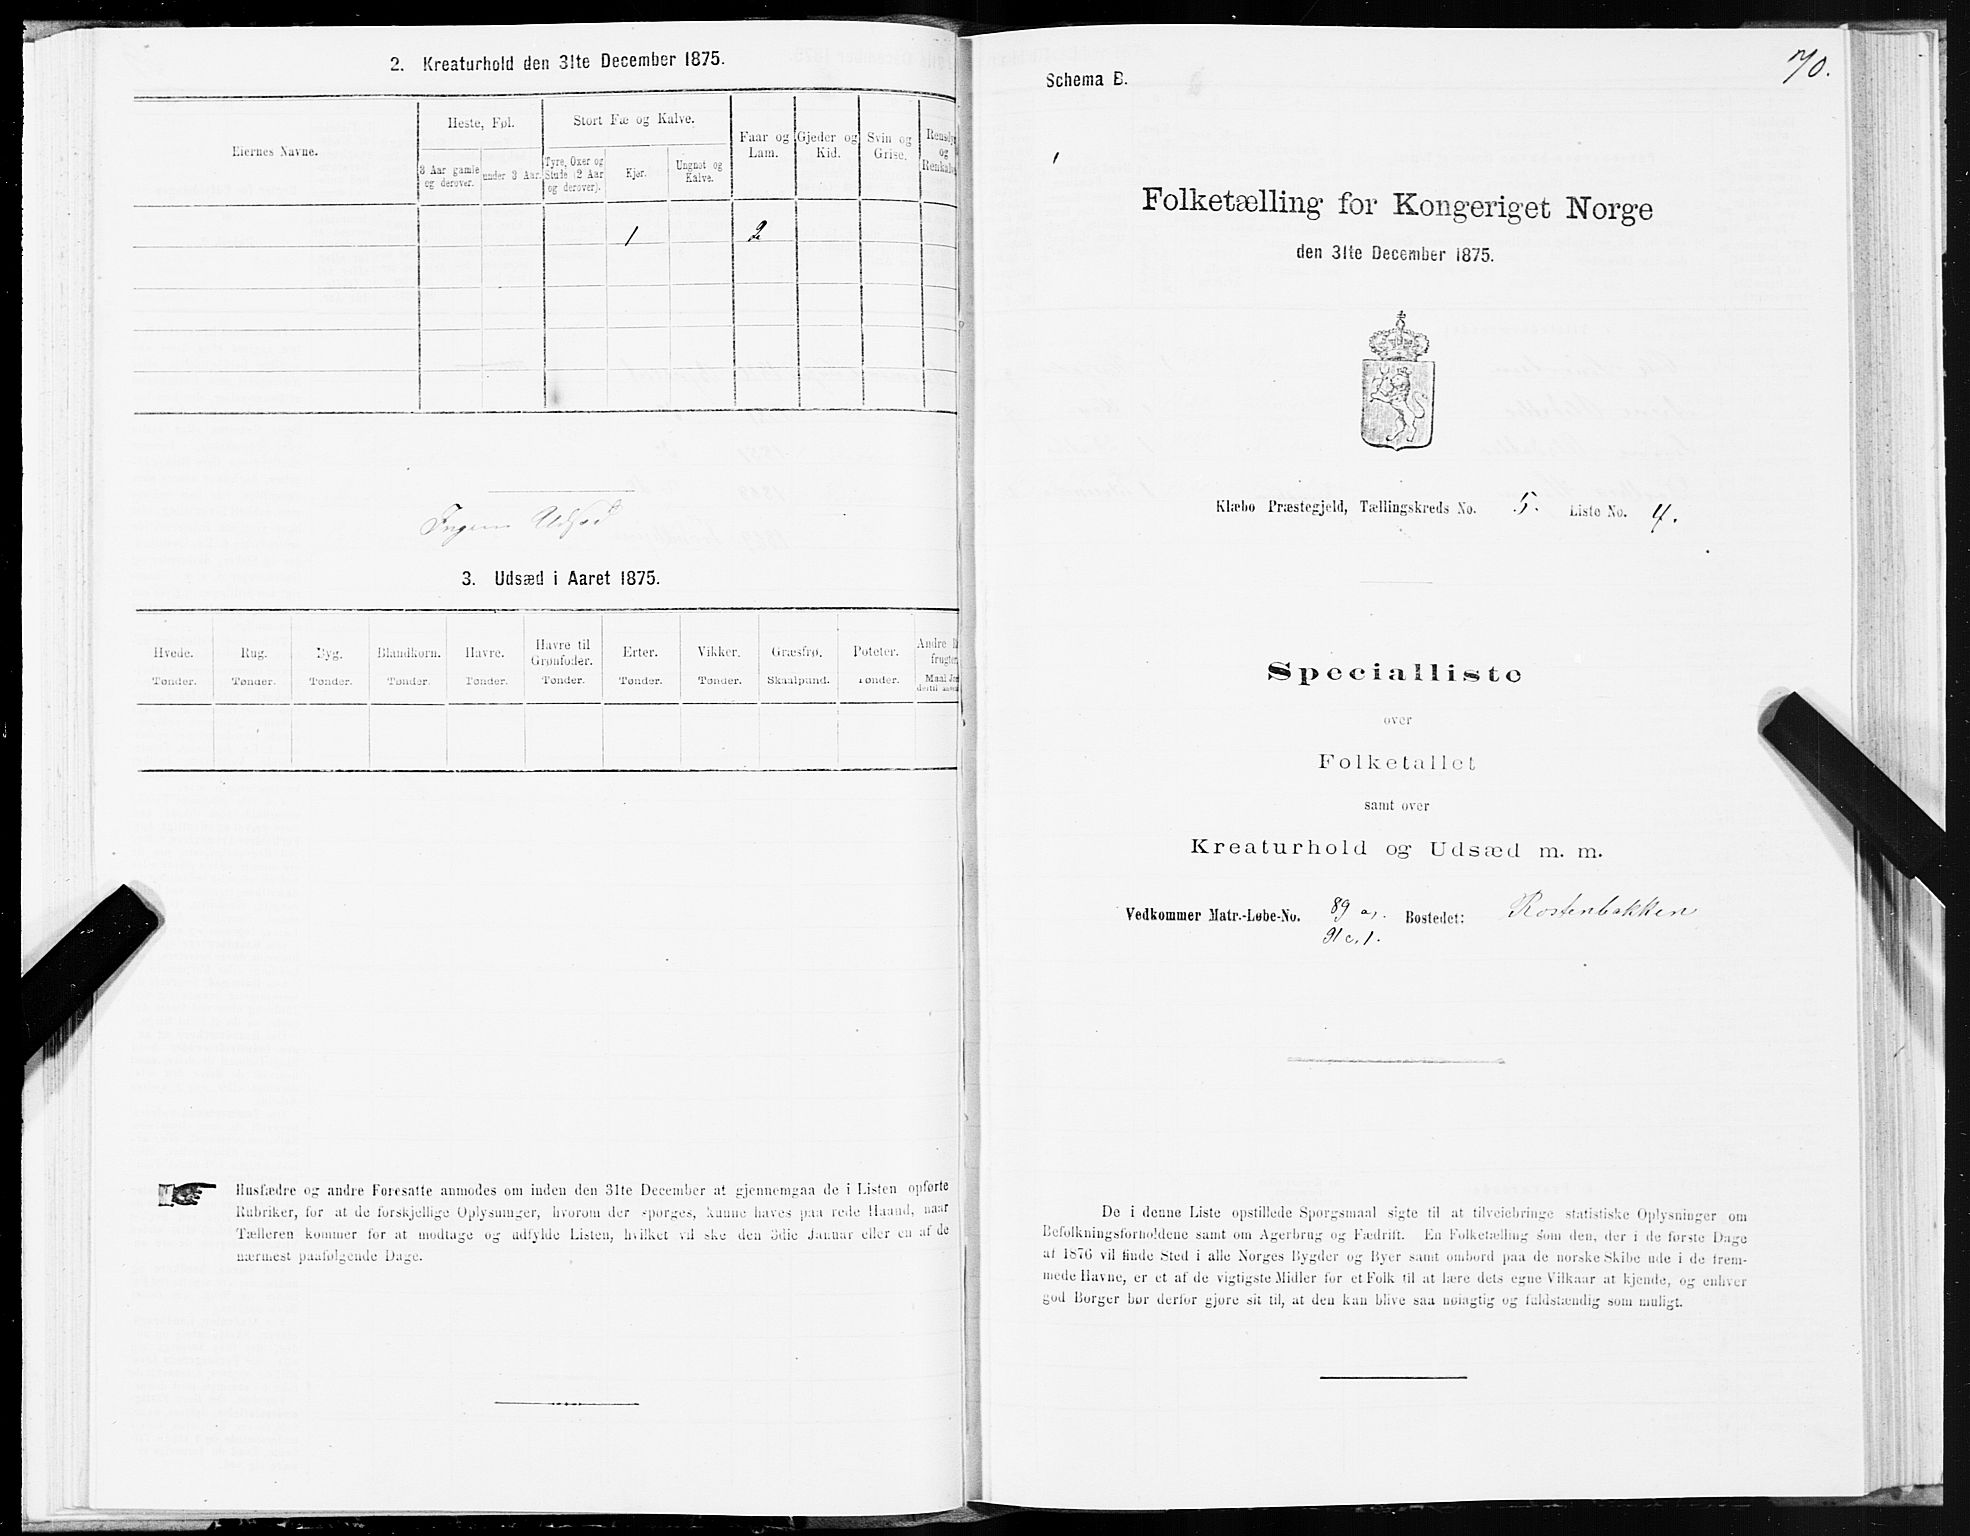 2. Kreaturhold den 31te December 1875.
Eiernes Navne.
Heste, Føl.
Stort Fæ og Kalve.
Faar og Lam.
Gjeder og Kid.
Svin og Grise.
og
3 Aar gamle og derover.
under 3 Aar.
Tyre, Oxer og Stude (2 Aar og derover).
Kjør.
Ungnøt og Kalve.
1 2
Ingen Udsæd
3. Udsæd i Aaret 1875.
Hvede. Rug. Byg. Blandkorn. Havre. Havre til Grønfoder. Erter. Vikker. Græsfrø. Poteter. Andre
Tønder. Tønder. Tønder. Tønder. Tønder. Tønder. Tønder. Tønder. Skaalpund. Tønder. Maal
Husfædre og andre Foresatte anmodes om inden den 31te December at gjennemgaa de i Listen opførte
Rubriker, for at de forskjellige Oplysninger, hvorom der spørges, kunne haves paa rede Haand, naar
Tælleren kommer for at modtage og udfylde Listen, hvilket vil ske den 3die Januar eller en af de
nærmest paafølgende Dage.
70.
Schema B.
Folketælling for Kongeriget Norge
den 31te December 1875.
Klæbo Præstegjeld, Tællingskreds No. 5. Liste No. 4.
Specialliste
over
Folketallet
samt over
Kreaturhold og Udsæd m. m.
Vedkommer Matr.-Løbe-No. 89 a,. Bostedet: Rostenbakken
91 c. 1.
De i denne Liste opstillede Spørgsmaal sigte til at tilveiebringe statistiske Oplysninger om
Befolkningsforholdene samt om Agerbrug og Fædrift. En Folketælling som den, der i de første Dage
af 1876 vil finde Sted i alle Norges Bygder og Byer samt ombord paa de norske Skibe ude i de frem-
mede Havne, er et af de vigtigste Midler for et Folk til at lære dets egne Vilkaar at kjende, og enhver
god Borger bør derfor gjøre sit til, at den kan blive saa nøiagtig og fuldstændig som muligt.